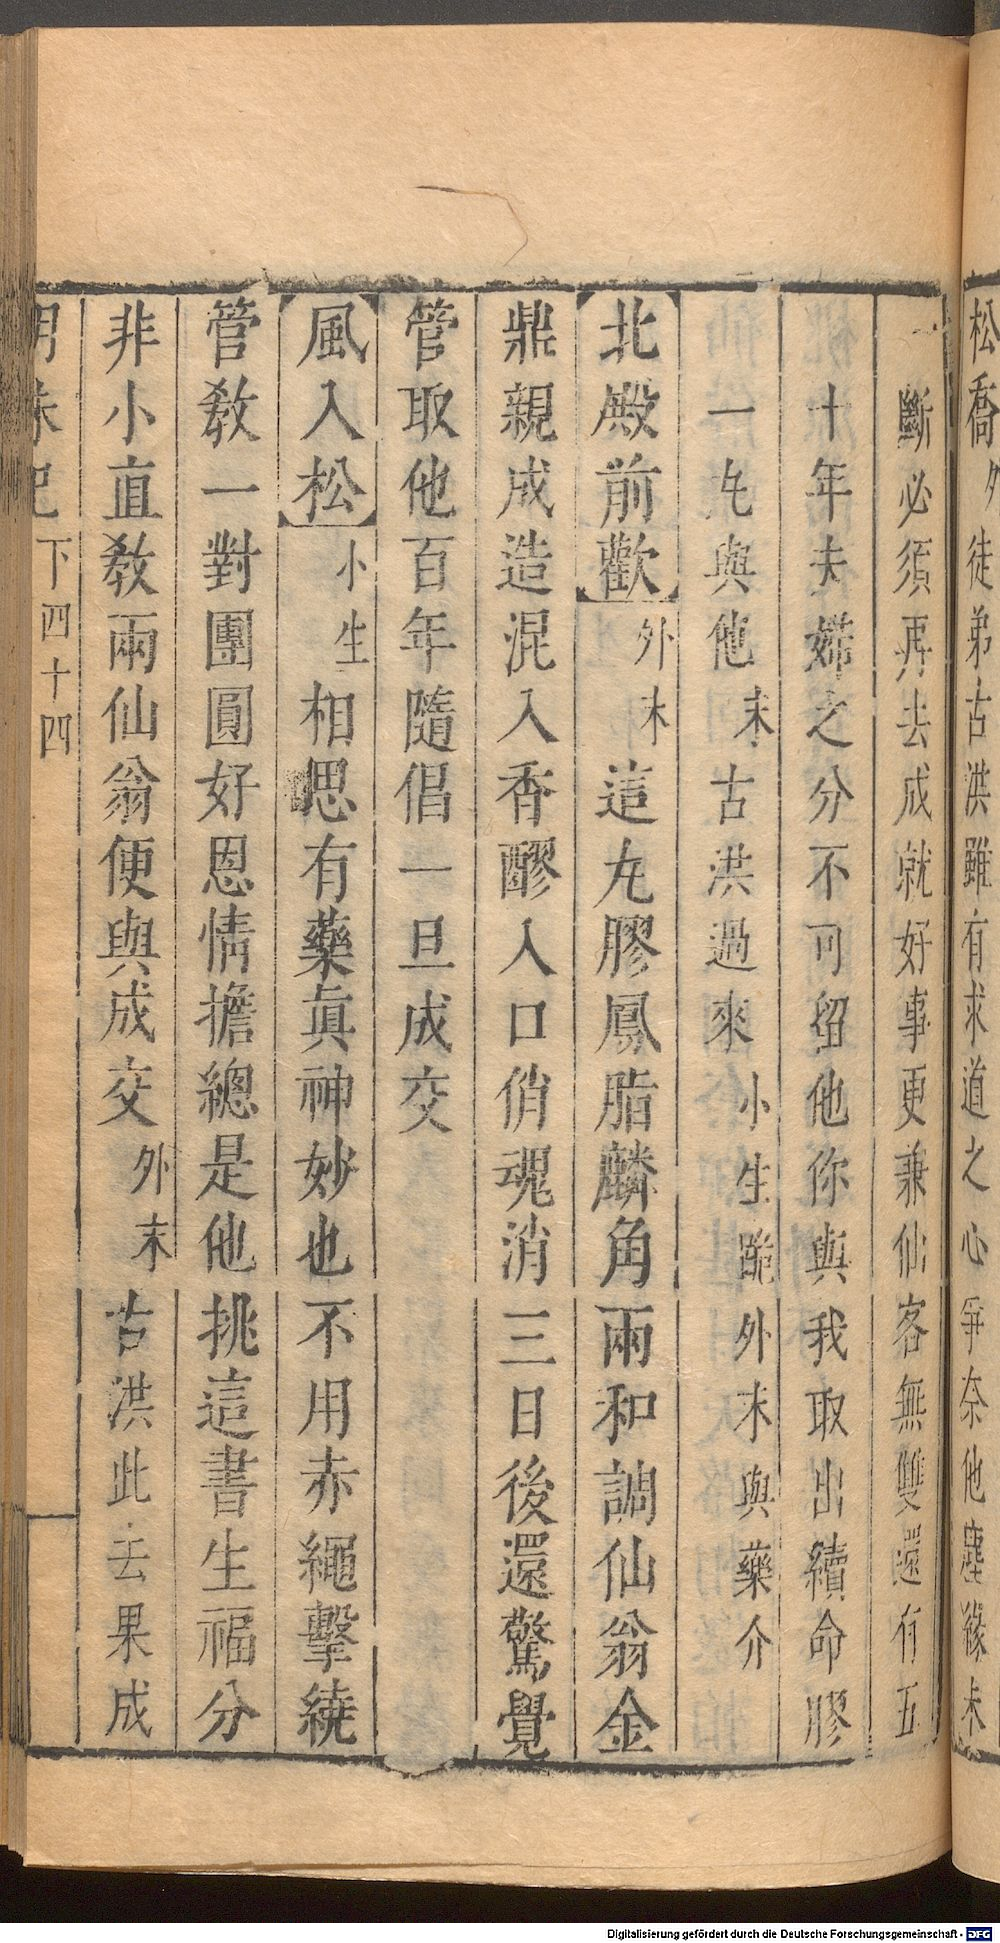 松喬外徒弟古洪雖有求道之心爭奈他塵緣未
斷必須再去成就好事更兼仙客無雙還有五
十年夫婦之分不可留他你與我取出續命膠
一丸與他末古洪過來小生跪外末與藥介
北殿前歡外末這丸膠鳳脂麟角兩和調仙翁金
鼎親成造混入香醪入口俏魂消三日後還驚覺
管取他百年隨倡一旦成交
風入松小生相思有藥眞神妙也不用赤繩擊繞
管敎一對團圓好恩情擔總是他挑這書生福分
非小直敎兩仙翁便與成交外末古洪此去果成
明珠記 下四十四
Digitalisierung gefördert durch die Deutsche Forschungsgemeinschaft - DFG